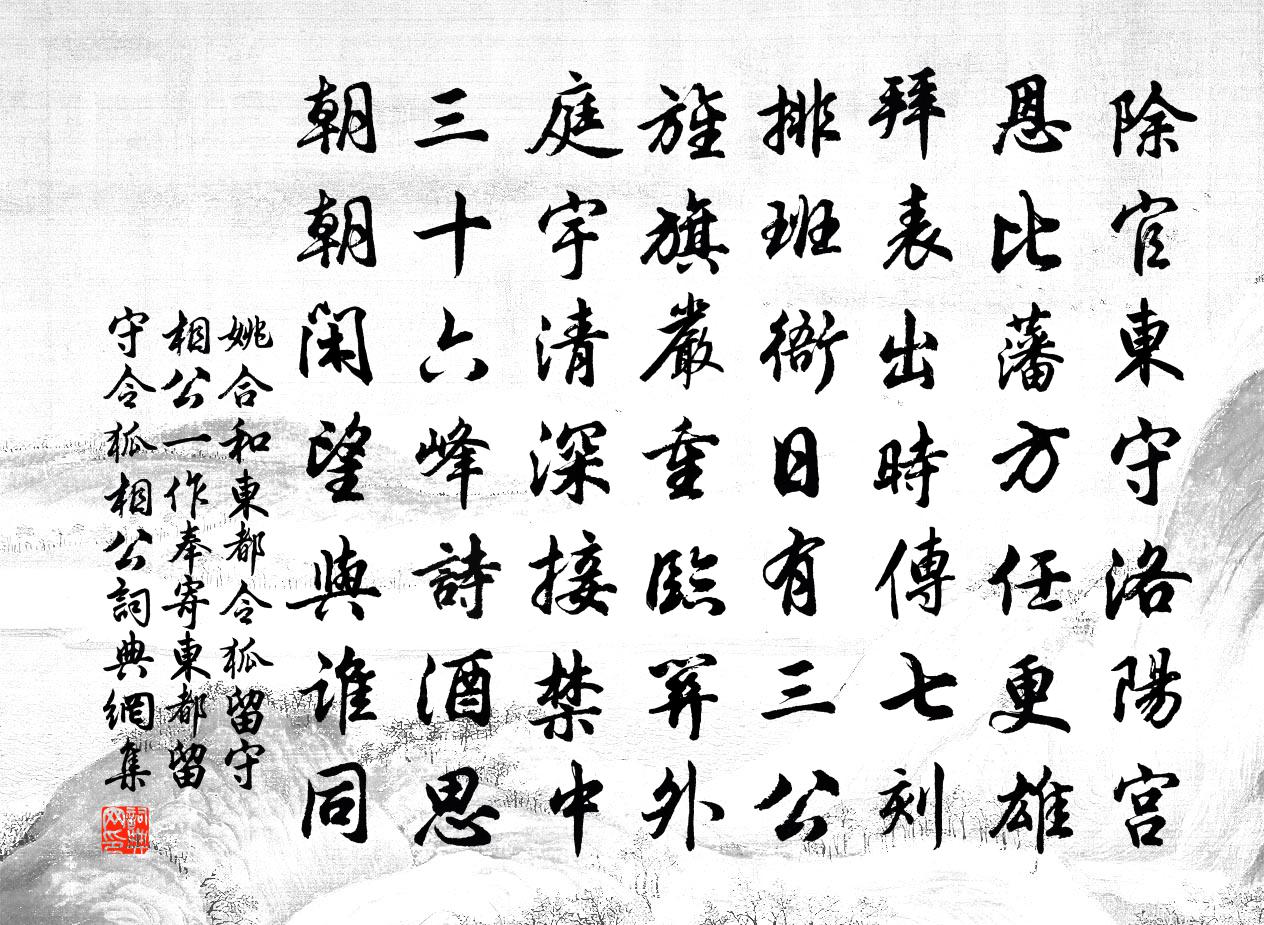 除官東守洛陽宮
恩比藩方任更雄
拜表出時傳七刻
排班衙日有三公
旌旗嚴重臨關外
庭宇清深接禁中
三十六峰詩酒思
朝朝閑望與誰同
姚合和東都令狐留守
相公一作奉寄東都留
守令狐相公詞典網集